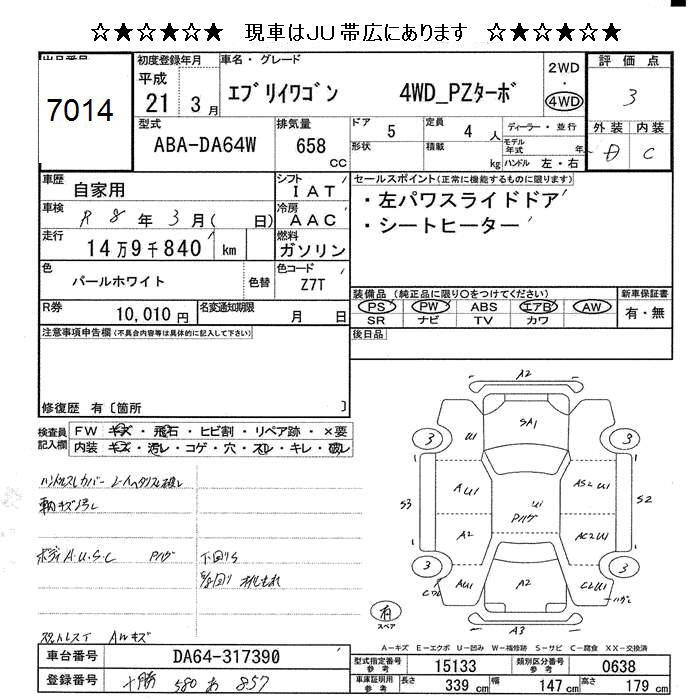 ☆★☆★☆☆ 現車はJU帯広にあります ☆★☆★☆★
出品番号
7014
初度登録年月
平成
21 年 3 月
車名・グレード
エブリイワゴン 4WD_PZターボ
2WD
・
4WD
評価点
3
外装 内装
C
型式
ABA-DA64W
排気量
658
CC
ドア 5
定員 4 人
形状
積載
kg
ディーラー・並行
モデル年式 年
ハンドル 左・右
車歴
自家用
シフト
IAT
車検
R 8 年 3 月( 日)
冷房
AAC
走行
14万9千840 km
燃料
ガソリン
色
パールホワイト
色替
色コード
Z7T
R券
10,010 円
名変通知期限
月 日
セールスポイント(正常に機能するものに限ります)
・左パワスライドドア
・シートヒーター
装備品(純正品に限り○をつけてください)
PS PW ABS エアB AW
SR ナビ TV カワ
新車保証書
有・無
後日品
注意事項申告欄(不具合内容等は具体的に記入して下さい)
修復歴 有〔箇所 〕
検査員記入欄
FW キズ・飛石・ヒビ割・リペア跡・×要
内装 キズ・汚レ・コゲ・穴・スレ・キレ・破レ
ボディA.U.S.C Pハゲ
下回りS
A2
SA1
3
U1
3
AU1
U1
Pハゲ
AS2 U1
S3
S2
A2
AC2 U1
3
AU1
A2
C2U1
3
A3
有
スペア
A-キズ E-エクボ U-凹み W-補修跡 S-サビ C-腐食 XX-交換済
車台番号
DA64-317390
登録番号
十勝 580 あ 857
型式指定番号 参考
15133
類別区分番号 参考
0638
車庫証明用 参考
長さ 339 cm
幅 147 cm
高さ 179 cm